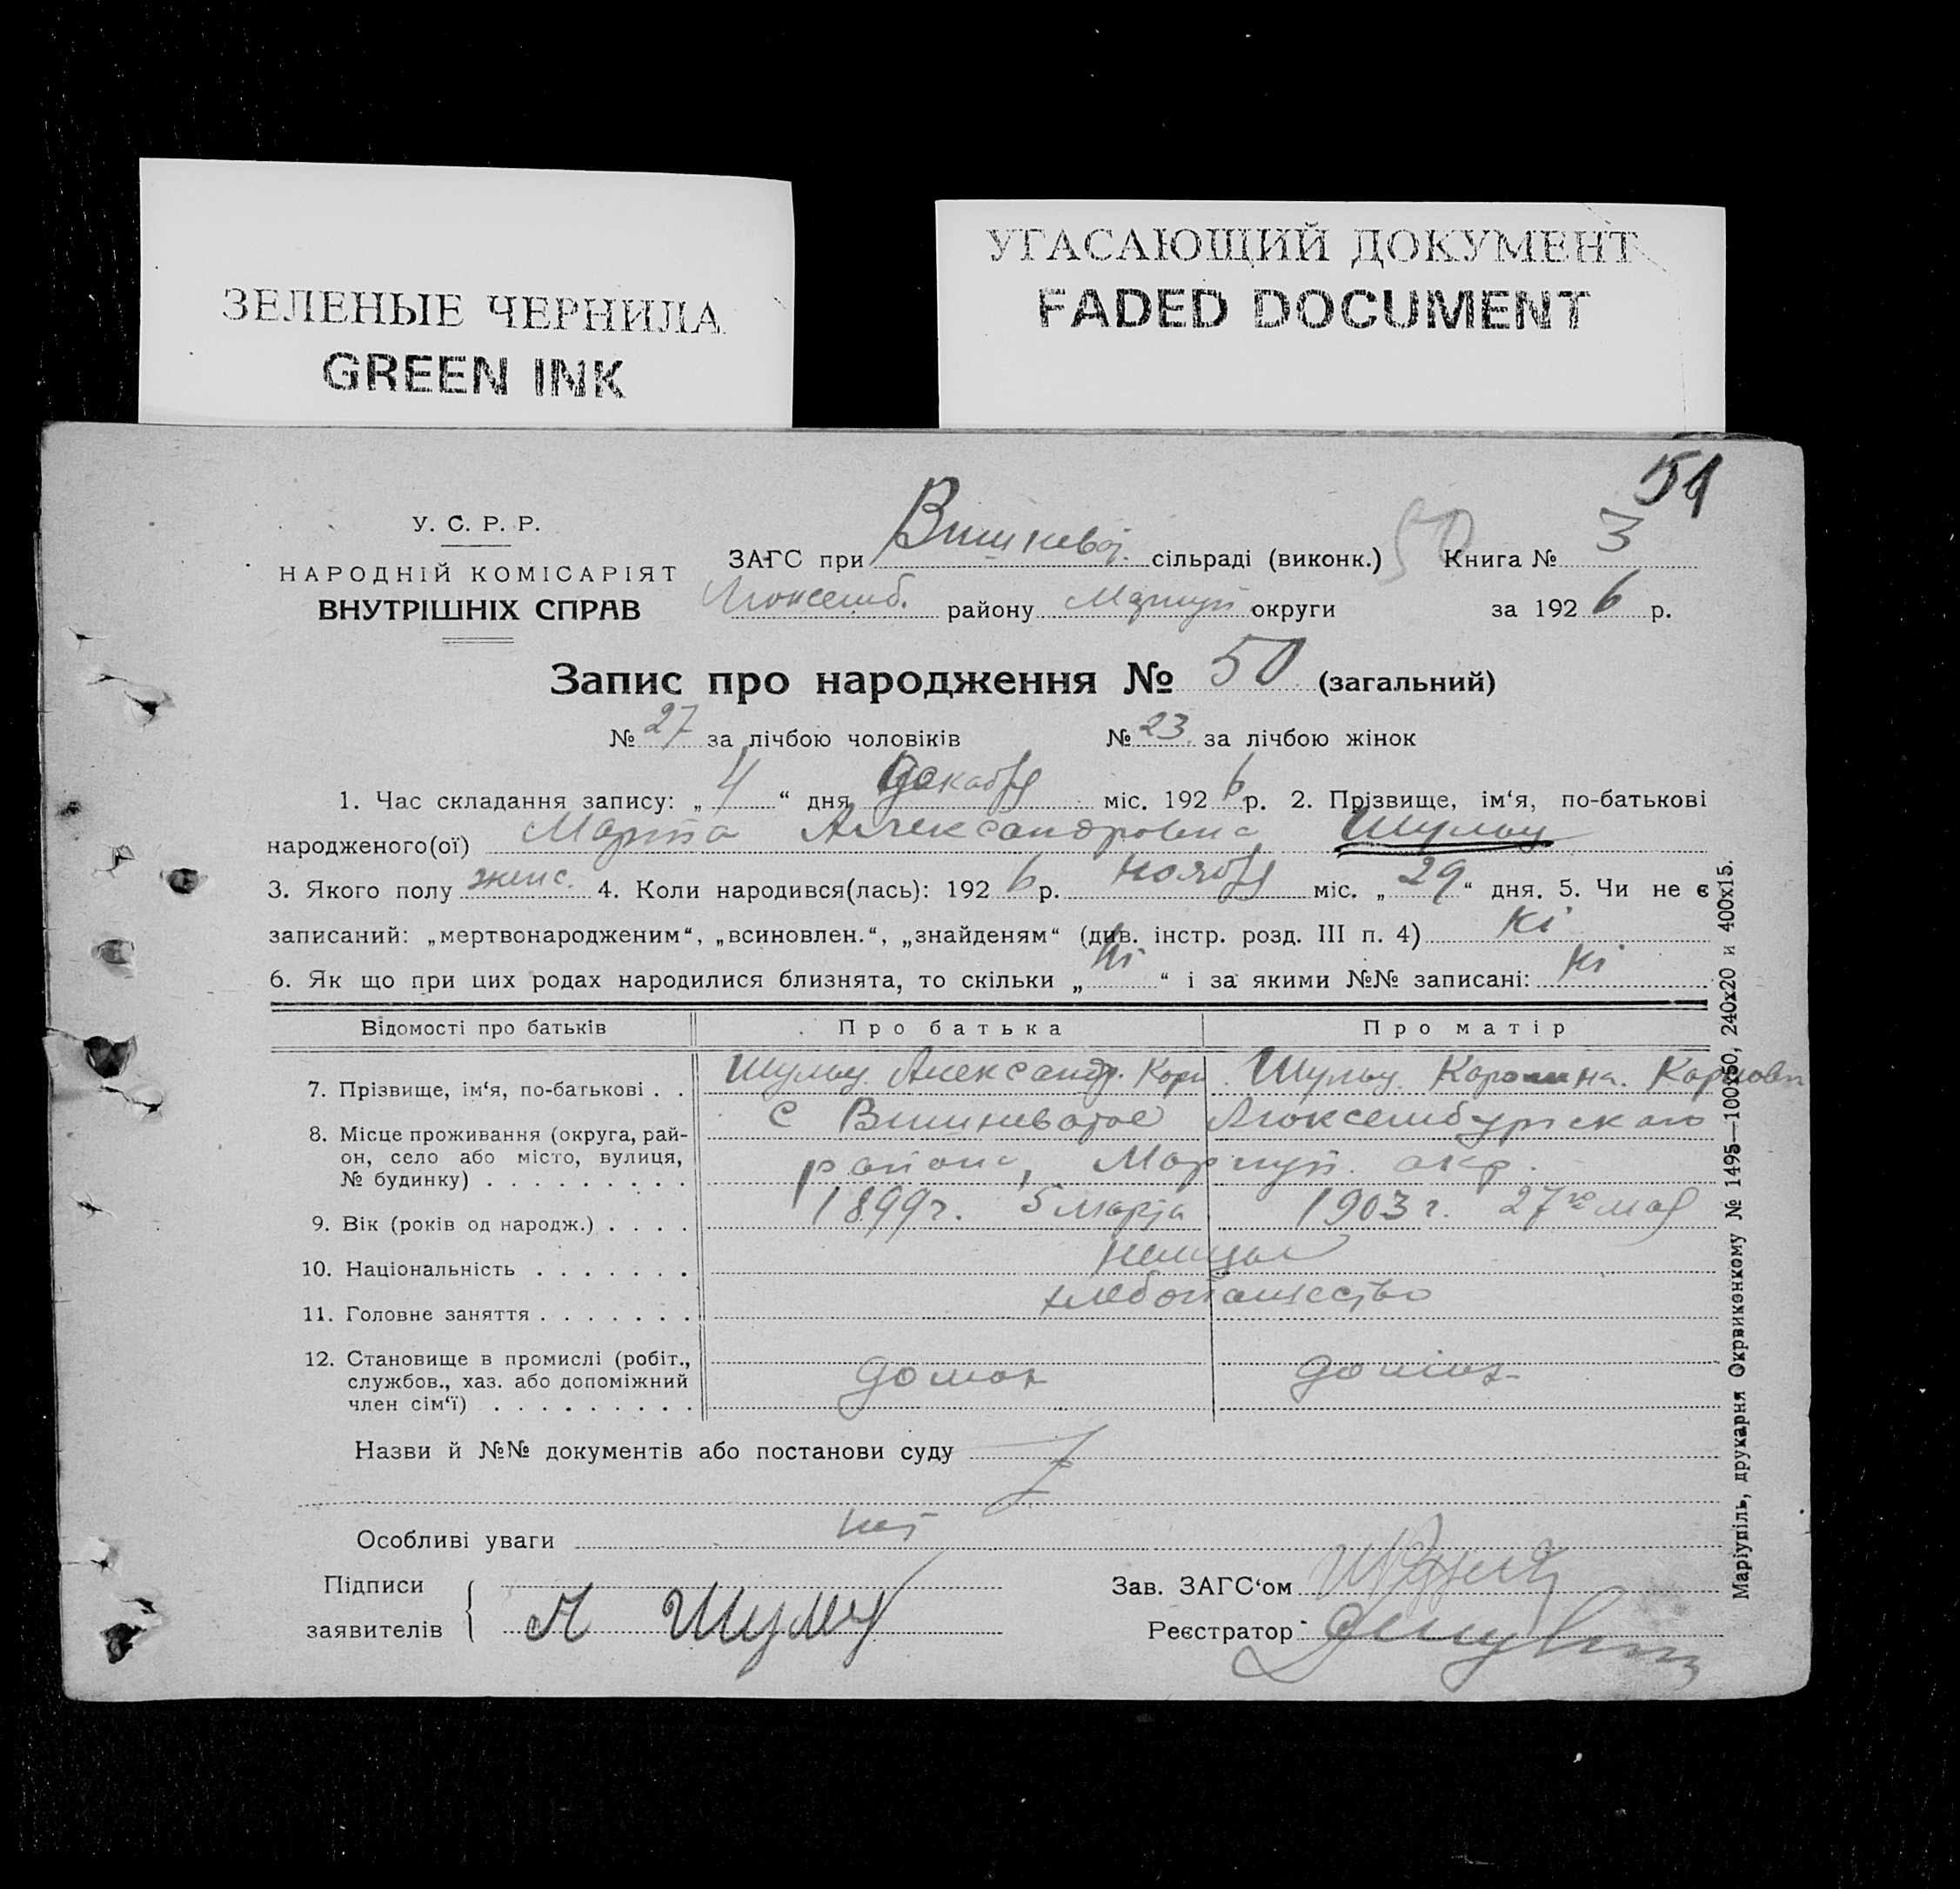 ЗЕЛЕНЫЕ ЧЕРНИЛА
GREEN INK
УГАСАЮЩИЙ ДОКУМЕНТ
FADED DOCUMENT
51
У. С. Р. Р.
НАРОДНІЙ КОМІСАРІЯТ
ВНУТРІШНІХ СПРАВ
ЗАГС при Вишневат. сільраді (виконк.) 50 Книга № 3
Люксемб. району Маріуп округи за 1926 р.
Запис про народження № 50 (загальний)
№ 27 за лічбою чоловіків № 23 за лічбою жінок
1. Час складання запису: „4“ дня Декабря міс. 1926 р. 2. Прізвище, ім‘я, по-батькові
народженого(ої) Марта Александровна Шульц
3. Якого полу женс. 4. Коли народився(лась): 1926 р. ноября міс. „29“ дня. 5. Чи не є
записаний: „мертвонародженим“, „всиновлен.“, „знайденям“ (див. інстр. розд. III п. 4) Ні
6. Як що при цих родах народилися близнята, то скільки „Ні“ і за якими №№ записані: Ні
Відомості про батьків Про батька Про матір
7. Прізвище, ім‘я, по-батькові . . Шульц Александр. Карл. Шульц Каролина Карловн
8. Місце проживання (округа, рай-
он, село або місто, вулиця,
№ будинку) . . . . . . . . .
с Вишневатое Люксембургского
района, Мариуп. окр.
9. Вік (років од народж.) . . . . 1899г. 5 марта 1903г. 27го мая
10. Національність . . . . . . . немцы
11. Головне заняття . . . . . . . хлебопашество
12. Становище в промислі (робіт.,
службов., хаз. або допоміжний
член сім‘ї) . . . . . . . . .
домох домох
Назви й №№ документів або постанови суду
Особливі уваги нет
Підписи
заявителів А Шульц
Зав. ЗАГС‘ом
Реєстратор
Маріупіль, друкарня Окрвиконкому № 1495—100х50, 240х20 и 400х15.